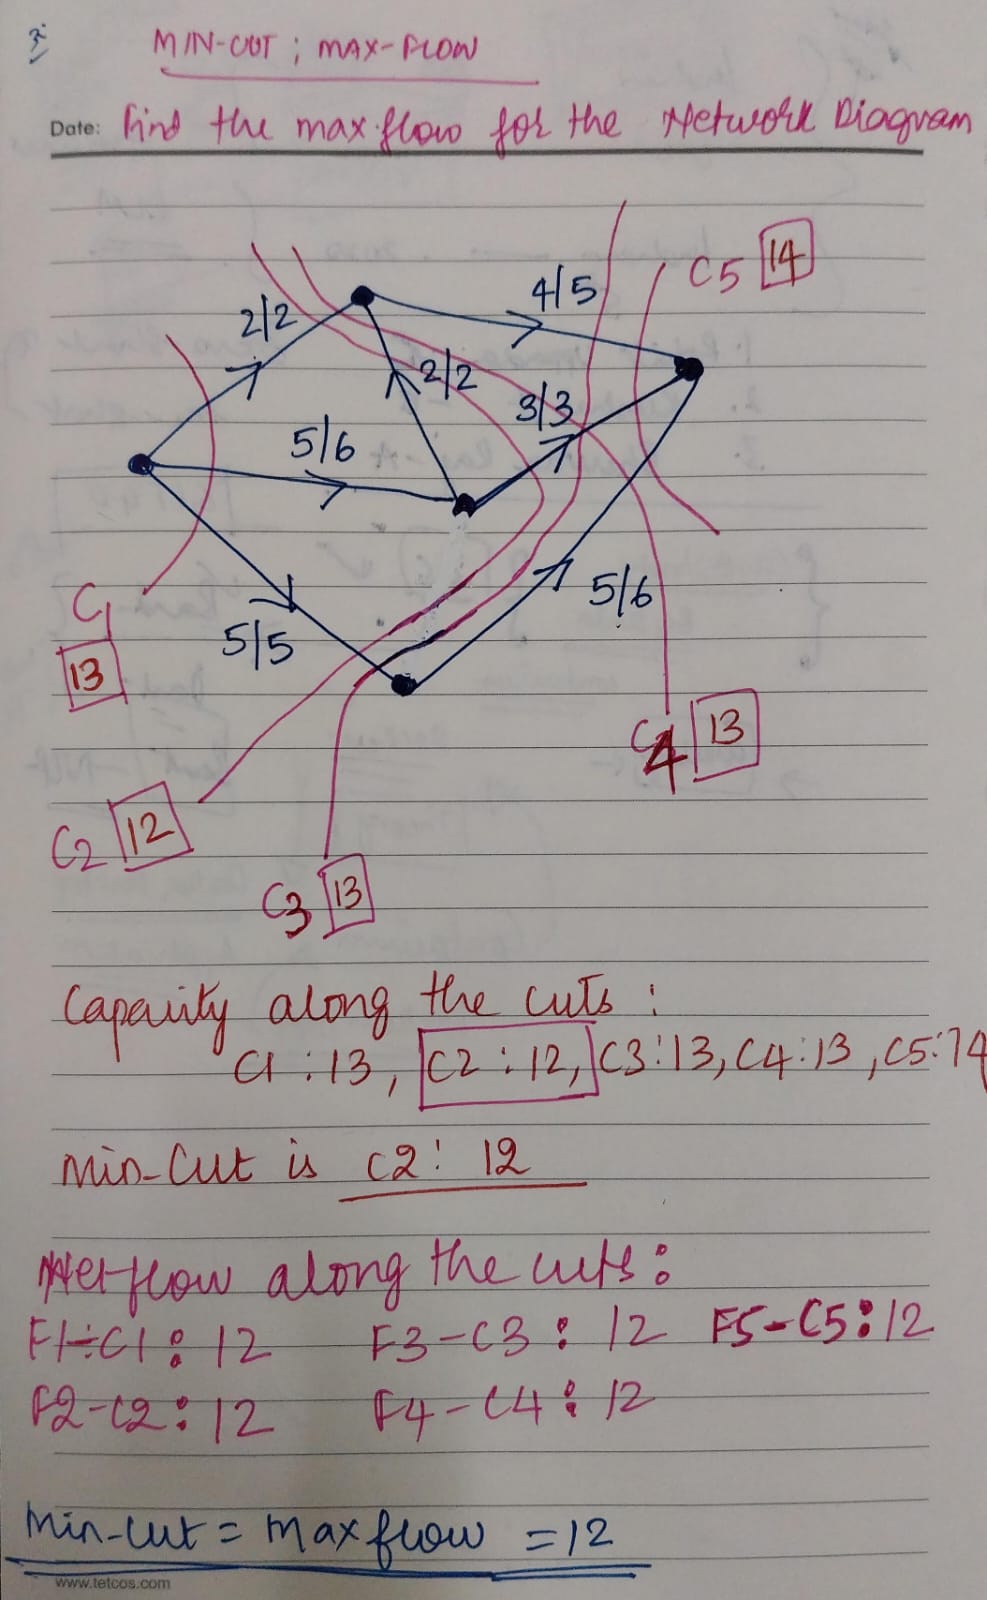 MIN-CUT ; MAX-FLOW
Date: Find the max.flow for the Network Diagram
C5 14
4/5
2/2
2/2
3/3
5/6
5/6
5/5
C1
13
C4 13
C2 12
C3 13
Capacity along the cuts :
C1 : 13, C2 : 12, C3 : 13, C4 : 13, C5 : 14
Min-Cut is C2 : 12
Netflow along the cuts :
F1-C1 : 12 F3-C3 : 12 F5-C5 : 12
F2-C2 : 12 F4-C4 : 12
Min-cut = Max flow = 12
www.tetcos.com